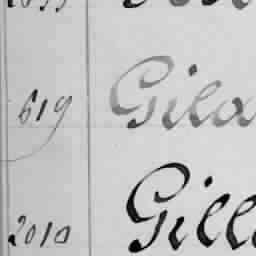 619 Gila
2010 Gill